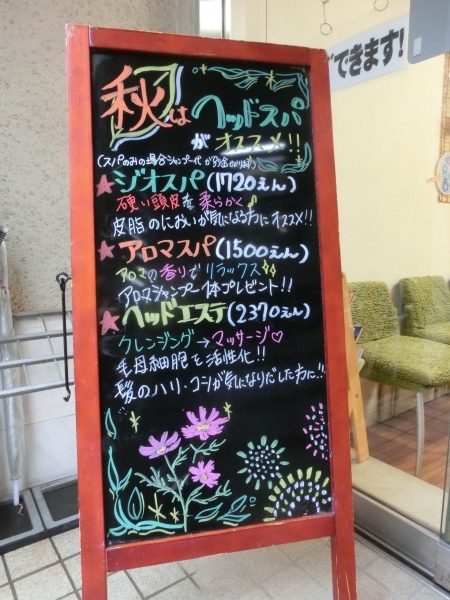 秋は ヘッドスパ
が オススメ!!
(スパのみの場合シャンプー代が別途かかります)
★ジオスパ(1720えん)
硬い頭皮を柔らかく♪
皮脂のにおいが気になる方にオススメ!!
★アロマスパ(1500えん)
アロマの香りでリラックス
アロマシャンプー1本プレゼント!!
★ヘッドエステ(2370えん)
クレンジング→マッサージ♡
毛母細胞を活性化!!
髪のハリ・コシが気になりだした方に!!
できます!